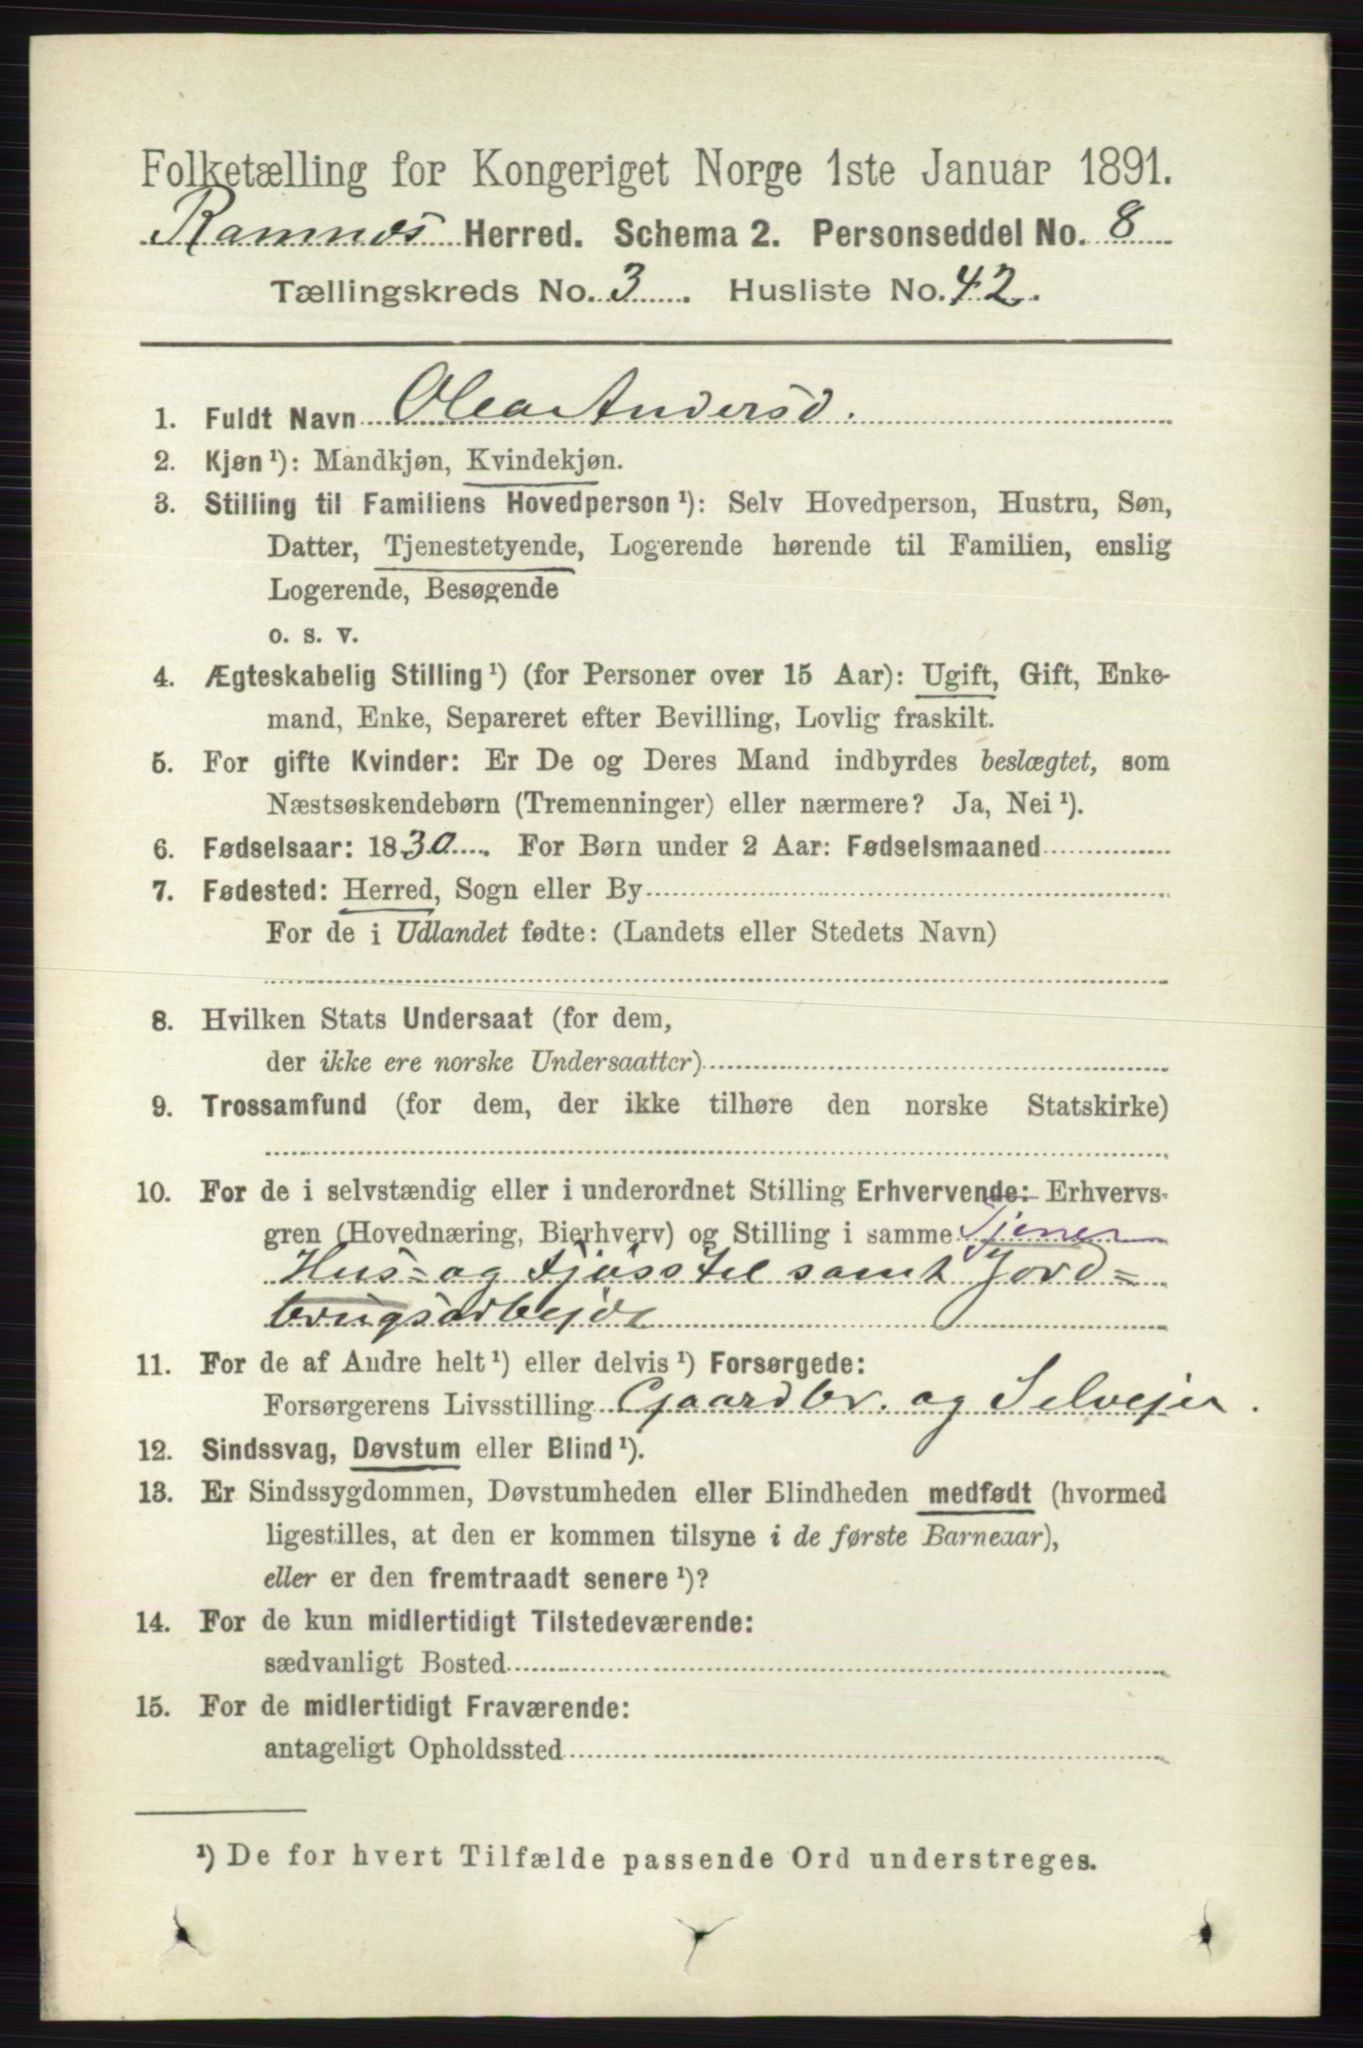 Folketælling for Kongeriget Norge 1ste Januar 1891.
Ramnes Herred. Schema 2. Personseddel No. 8
Tællingskreds No. 3. Husliste No. 42.
1. Fuldt Navn Olea Andersd.
2. Kjøn¹): Mandkjøn, Kvindekjøn.
3. Stilling til Familiens Hovedperson¹): Selv Hovedperson, Hustru, Søn,
Datter, Tjenestetyende, Logerende hørende til Familien, enslig
Logerende, Besøgende
o. s. v.
4. Ægteskabelig Stilling¹) (for Personer over 15 Aar): Ugift, Gift, Enke-
mand, Enke, Separeret efter Bevilling, Lovlig fraskilt.
5. For gifte Kvinder: Er De og Deres Mand indbyrdes beslægtet, som
Næstsøskendebørn (Tremenninger) eller nærmere? Ja, Nei¹).
6. Fødselsaar: 1830. For Børn under 2 Aar: Fødselsmaaned
7. Fødested: Herred, Sogn eller By
For de i Udlandet fødte: (Landets eller Stedets Navn)
8. Hvilken Stats Undersaat (for dem,
der ikke ere norske Undersaatter)
9. Trossamfund (for dem, der ikke tilhøre den norske Statskirke)
10. For de i selvstændig eller i underordnet Stilling Erhvervende: Erhvervs-
gren (Hovednæring, Bierhverv) og Stilling i samme Tjener
Hus- og Fjøsstel samt Jord-
brugsarbejde
11. For de af Andre helt¹) eller delvis¹) Forsørgede:
Forsørgerens Livsstilling Gaardbr. og Selvejer.
12. Sindssvag, Døvstum eller Blind¹).
13. Er Sindssygdommen, Døvstumheden eller Blindheden medfødt (hvormed
ligestilles, at den er kommen tilsyne i de første Barneaar),
eller er den fremtraadt senere¹)?
14. For de kun midlertidigt Tilstedeværende:
sædvanligt Bosted
15. For de midlertidigt Fraværende:
antageligt Opholdssted
¹) De for hvert Tilfælde passende Ord understreges.